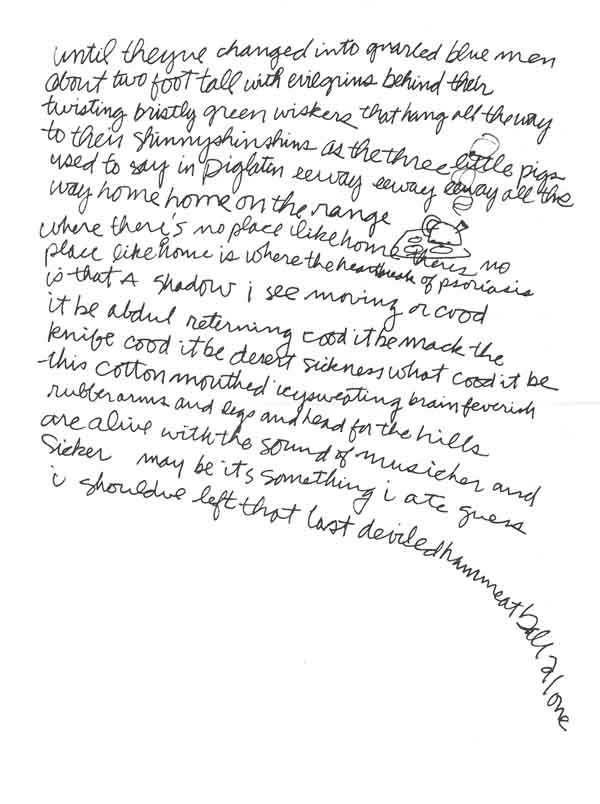 until theyve changed into gnarled blue men
about two foot tall with evilgrins behind their
twisting bristly green wiskers that hang all the way
to their shinnyshinshins as the three little pigs
used to say in piglaten eeway eeway eeway all the
way home home on the range
where there's no place like home theres no
place like home is where the heartbreak of psoriasis
is that A shadow i see moving or cood
it be abdul reterning cood it be mack the
knife cood it be desert sickness what cood it be
this cotton mouthed icysweating brain feverish
rubber arms and legs and head for the hills
are alive with the sound of musicker and
sicker may be its something i ate guess
i should've left that last deviledhammeatball alone